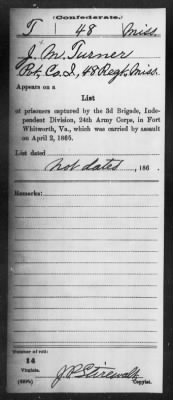 Confederate.
T 48 Miss.
J. M. Turner
Pvt. Co. I, 48 Regt. Miss.
Appears on a
List
of prisoners captured by the 3d Brigade, Inde-
pendent Division, 24th Army Corps, in Fort
Whitworth, Va., which was carried by assault
on April 2, 1865.
List dated
Not dated, 186 .
Remarks:
Number of roll:
14
Virginia.
J. P. Stirewalt
(639b) Copyist.